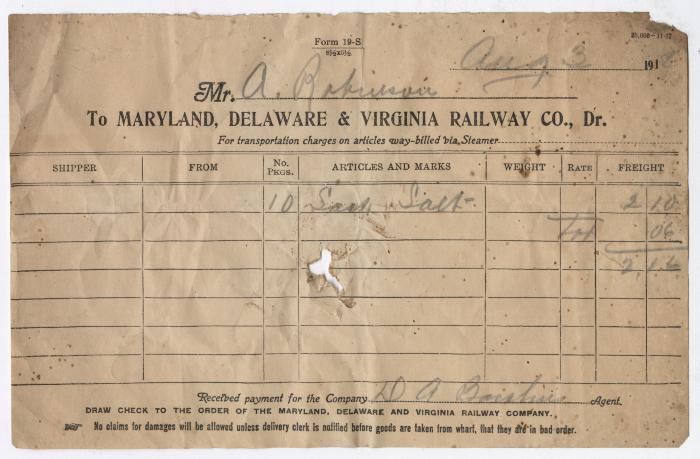 Form 19-S
8½x5½
Aug 3 1918
Mr. A. Robinson
To MARYLAND, DELAWARE & VIRGINIA RAILWAY CO., Dr.
For transportation charges on articles way-billed via Steamer
SHIPPER FROM No. PKGS. ARTICLES AND MARKS WEIGHT RATE FREIGHT
10 Sack Salt 2 10
06
2,16
Received payment for the Company D A Agent.
DRAW CHECK TO THE ORDER OF THE MARYLAND, DELAWARE AND VIRGINIA RAILWAY COMPANY.
No claims for damages will be allowed unless delivery clerk is notified before goods are taken from wharf, that they are in bad order.